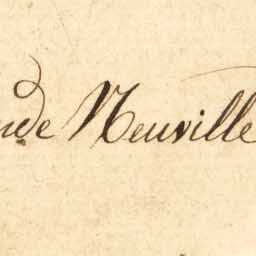 nde Neuville